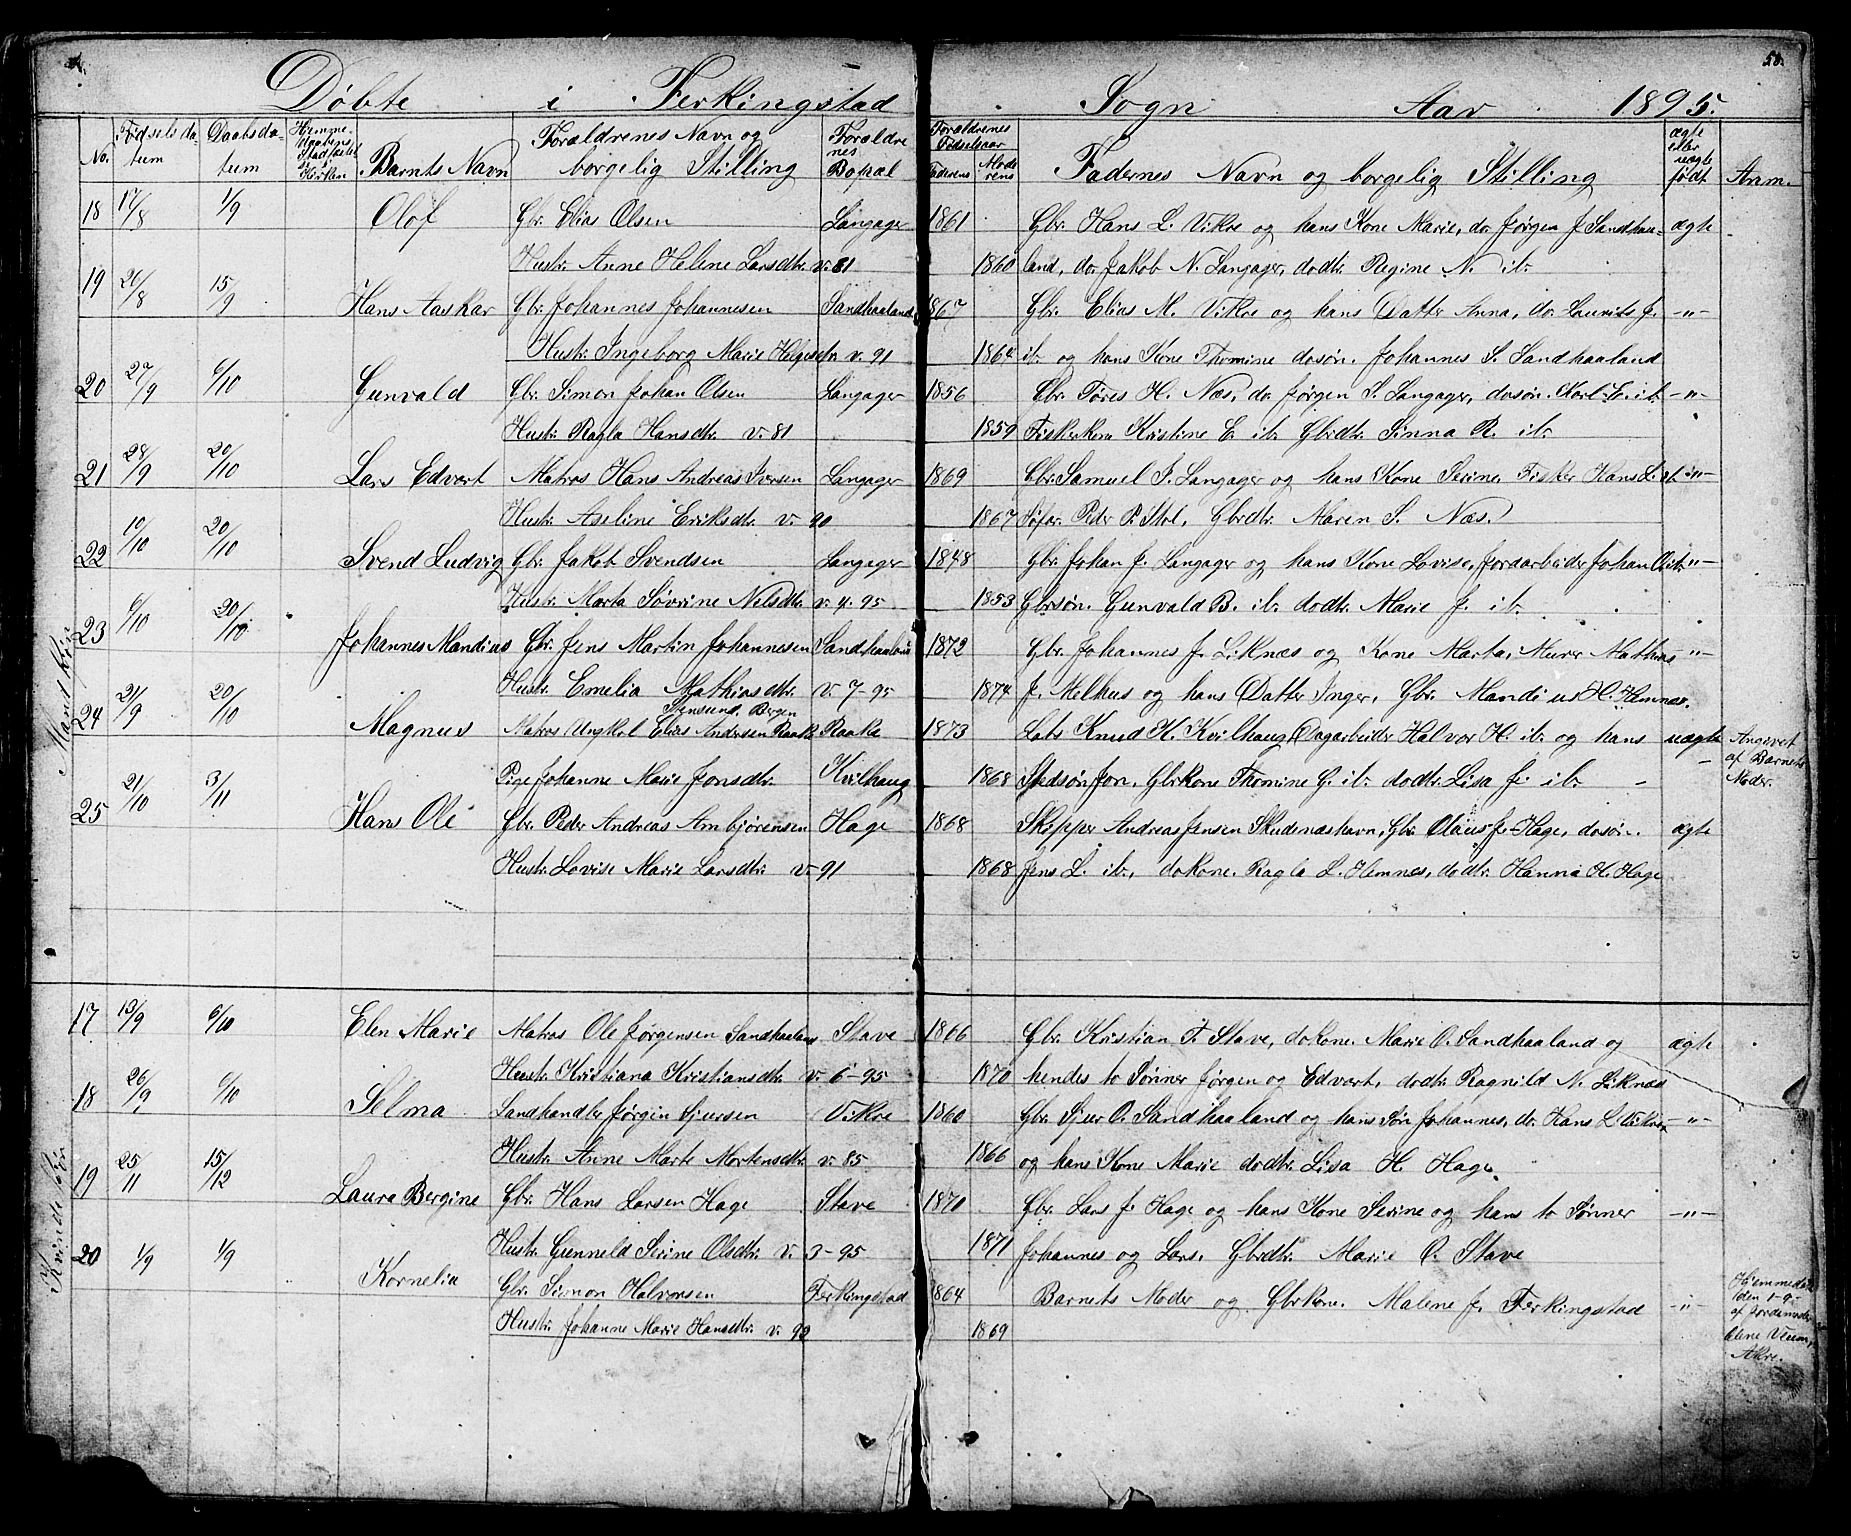 Døbte i Ferkingstad Sogn Aar 1895.
50.
No. Fødselsdatum Daabsdatum Hjemmedaabens Stadfæstelse i Kirken Barnets Navn Forældrenes Navn og borgelig Stilling Forældrenes Bopæl Forældrenes Fødselsaar Faderens Moderens Fadernes Navn og borgelig Stilling ægte eller uægte født Anm.
Mandkjøn
18 17/8 1/9 Olof Gbr. Elias Olsen Langager 1861 Gbr. Hans L. Vikre og hans Kone Marie, do. Jørgen J. Sandhaa- ægte
Hustr. Anne Helene Larsdtr. v. 81 1860 land, do. Jakob N. Langager, dodtr. Regine N. ib.
19 21/8 15/9 Hans Aaskar Gbr. Johannes Johannesen Sandhaaland 1867 Gbr. Elias M. Vikre og hans Datter Anna, do. Laurits J. -"-
Hustr. Ingeborg Marie Helgesdtr v. 91 1864 ib. og hans Kone Thomine dosøn. Johannes S. Sandhaaland
20 27/9 6/10 Gunvald Gbr. Simon Johan Olsen Langager 1856 Gbr. Tøres H. Næs, do. Jørgen S. Langager, dosøn. Karl E. ib. -"-
Hustr. Ragla Hansdtr. v. 81 1859 Fiskerkone Kristine E. ib. Gbrdtr. Sinna R. ib.
21 28/9 20/10 Lars Edvert Matros Hans Andreas Iversen Langager 1869 Gbr. Samuel J. Langager og hans Kone Serine, Fisker Hans L. -"-
Hustr. Aseline Eriksdtr. v. 90 1867 Søfar. Peder P. Stol, Gbrdtr. Maren S. Næs.
22 10/10 20/10 Svend Ludvig Gbr. Jakob Svendsen Langager 1848 Gbr. Johan J. Langager og hans Kone Lovise, Jordarbeider Johan O. ib. -"-
Hustr. Marta Søvrine Nilsdtr. v. 4-95 1853 Gbrsøn. Gunvald B. ib. dodtr. Marie J. ib.
23 6/10 20/10 Johannes Mandius Gbr. Jens Martin Johannesen Sandhaaland 1872 Gbr. Johannes J. Liknæs og Kone Marta, Murer Mathias -"-
Hustr. Emelia Mathiasdtr. v. 7-95 1874 J. Melhus og hans Datter Inger, Gbr. Mandius H. Hemnæs.
Stensund, Bergen
24 21/9 20/10 Magnus Matros Ungkal Elias Andersen Raake Raake 1873 Lods Knud H. Kvilhaug, Dagarbeider Halvor H. ib. og hans uægte Angivet af Barnets Moder.
Pige Johanne Marie Jonsdtr. Kvilhaug 1868 Stedsøn Jon, Gbrkone Thomine G. ib. dodtr. Lisa J. ib.
25 21/10 3/11 Hans Ole Gbr. Peder Andreas Ambjørensen Hage 1868 Skipper Andreas Jensen Skudenæshavn, Gbr. Olaus J. Hage, dosøn. ægte
Hustr. Lovise Marie Larsdtr. v. 91 1868 Jens L. ib., dokone. Ragla L. Hemnæs, dodtr. Hanna H. Hage
Kvindekjøn
17 13/9 6/10 Elen Marie Matros Ole Jørgensen Sandhaaland Stave 1866 Gbr. Kristian F. Stave, dokone. Marie O. Sandhaaland og ægte
Hustr. Kristiana Kristiansdtr. v. 6-95 1870 hendes to Sønner Jørgen og Edvert, dodtr. Ragnild N. Liknæs
18 26/9 6/10 Selma Landhandler Jørgen Sjursen Vikre 1860 Gbr. Sjur O. Sandhaaland og hans Søn Johannes, do. Hans L. Vikre -"-
Hustr. Anne Marte Mortensdtr. v. 85 1866 og hans Kone Marie dodtr. Lisa H. Hage.
19 25/11 15/12 Laura Bergine Gbr. Hans Larsen Hage Stave 1870 Gbr. Lars J. Hage og hans Kone Serine og hans to Sønner -"-
Hustr. Gunneld Serine Olsdtr. v. 3-95 1871 Johannes og Lars. Gbrdtr. Marie O. Stave
20 1/9 1/9 Kornelia Gbr. Simon Halvorsen Ferkingstad 1864 Barnets Moder og Gbrkone. Malene J. Ferkingstad -"- Hjemmedøbt den 1-9- af Jordemoder Elene Veum, Akre.
Hustr. Johanne Marie Hansdtr. v. 92 1869